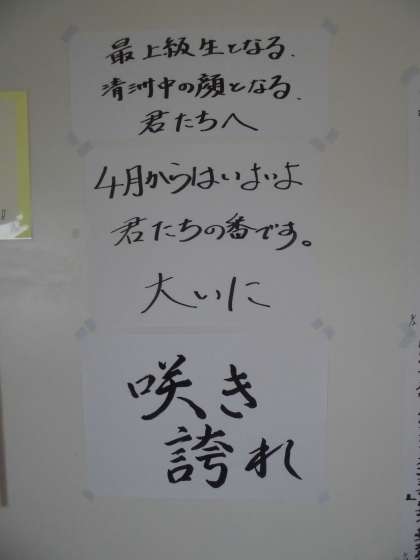 最上級生となる、
清洲中の顔となる、
君たちへ
4月からはいよいよ
君たちの番です。
大いに
咲き
誇れ